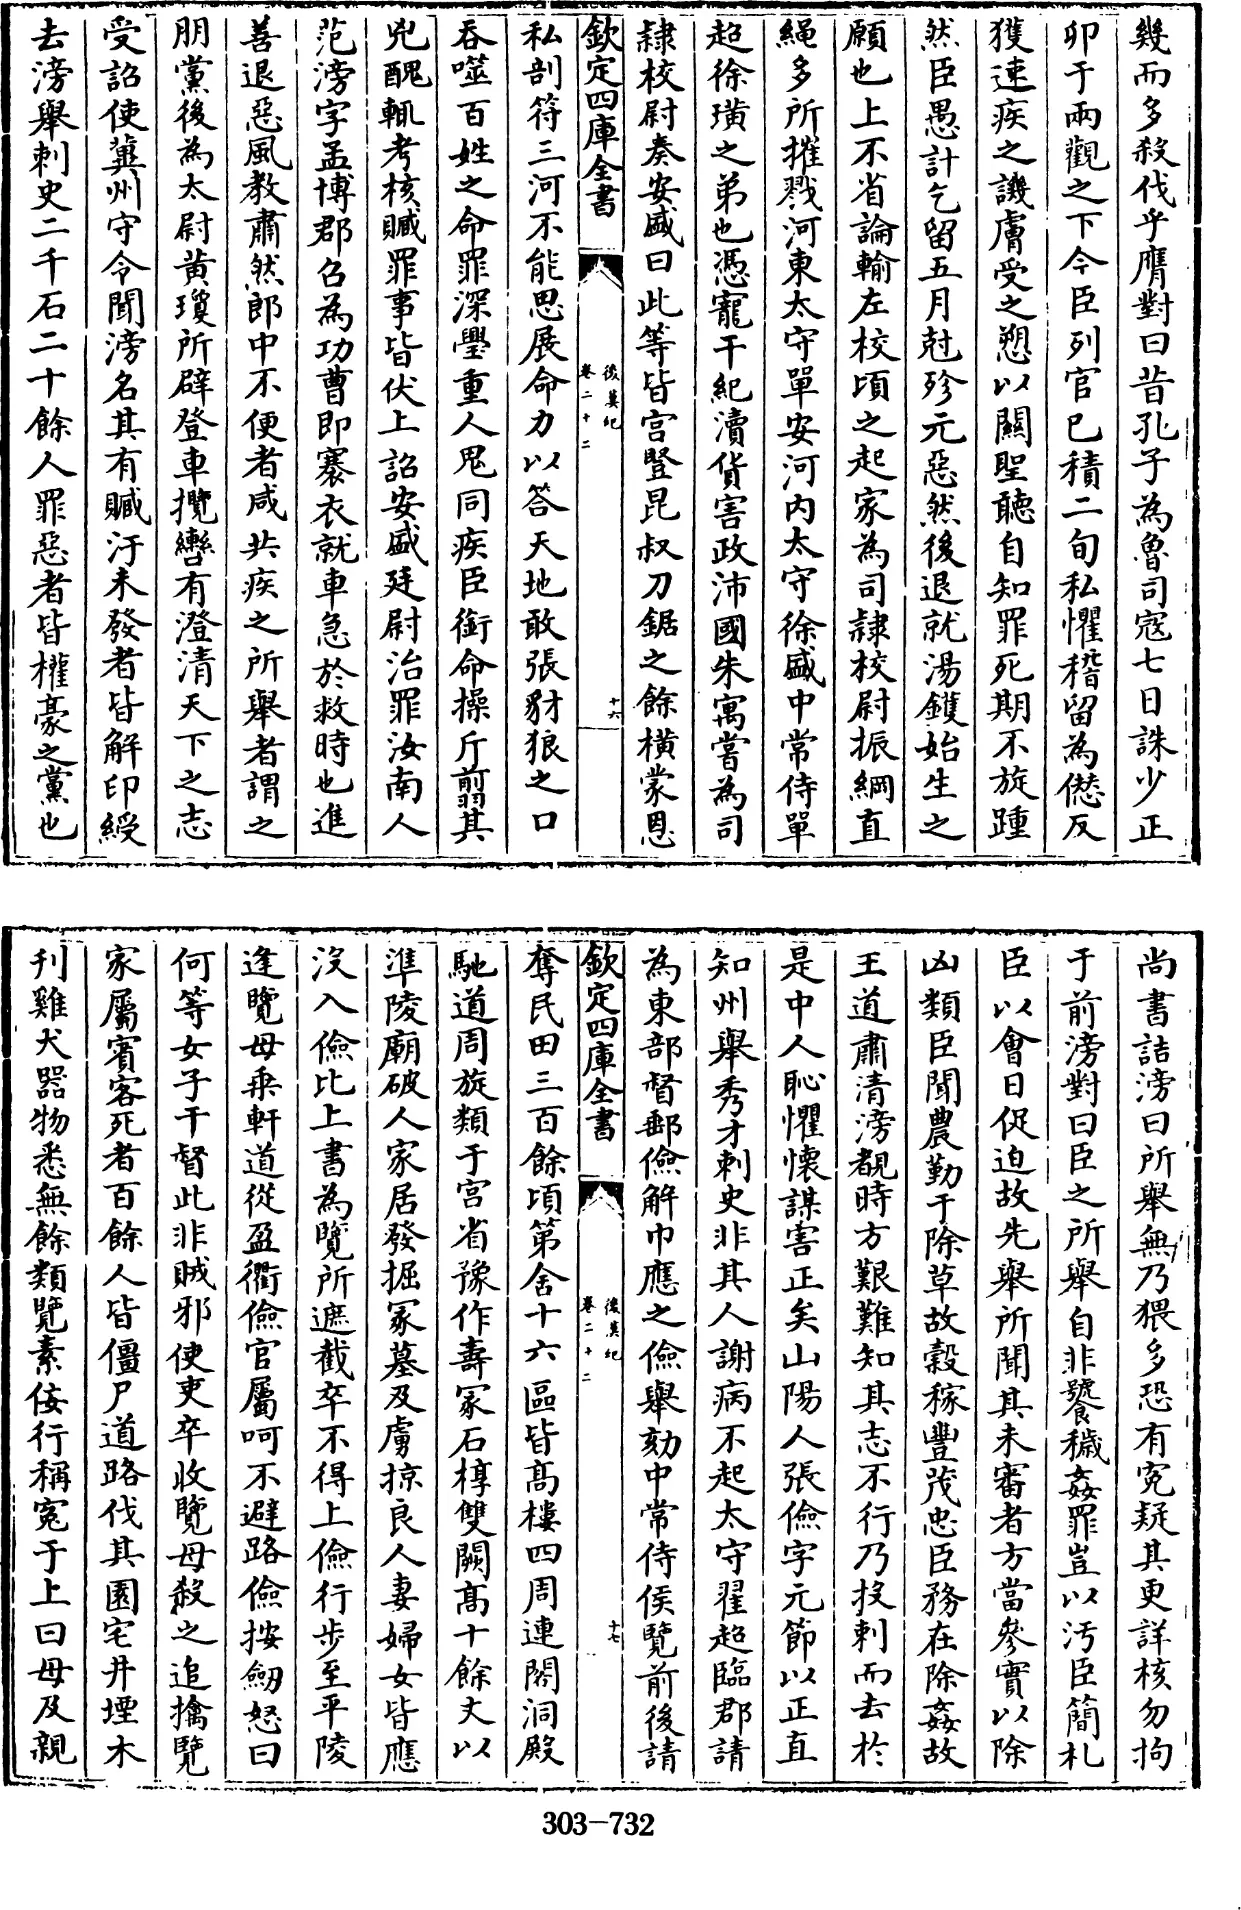 幾而多殺伐乎膺對曰昔孔子為魯司寇七日誅少正
卯于兩觀之下今臣列官已積二旬私懼稽留為愆反
獲速疾之譏膚受之愬以關聖聽自知罪死期不旋踵
然臣愚計乞留五月尅殄元惡然後退就湯鑊始生之
願也上不省論輸左校頃之起家為司隸校尉振綱直
繩多所摧戮河東太守單安河内太守徐盛中常侍單
超徐璜之弟也憑寵干紀瀆貨害政沛國朱㝢嘗為司
隸校尉奏安盛曰此等皆宫豎昆叔刀鋸之餘橫蒙恩
欽定四庫全書
後漢紀
卷二十二
十六
私剖符三河不能思展命力以答天地敢張豺狼之口
吞噬百姓之命罪深舋重人鬼同疾臣銜命操斤翦其
兇醜輒考核贓罪事皆伏上詔安盛廷尉治罪汝南人
范滂字孟博郡召為功曹即褰衣就車急於救時也進
善退惡風教肅然郎中不便者咸共疾之所舉者謂之
朋黨後為太尉黄瓊所辟登車攬轡有澄清天下之志
受詔使冀州守令聞滂名其有贓汙未發者皆解印綬
去滂舉刺史二千石二十餘人罪惡者皆權豪之黨也
尚書詰滂曰所舉無乃猥多恐有寃疑其更詳核勿拘
于前滂對曰臣之所舉自非饕穢姦罪豈以汚臣簡札
臣以會日促迫故先舉所聞其未審者方當參實以除
凶類臣聞農勤于除草故穀稼豐茂忠臣務在除姦故
王道肅清滂覩時方艱難知其志不行乃投刺而去於
是中人恥懼懷謀害正矣山陽人張儉字元節以正直
知州舉秀才刺史非其人謝病不起太守翟超臨郡請
為東部督郵儉解巾應之儉舉劾中常侍侯覽前後請
欽定四庫全書
後漢紀
卷二十二
十七
奪民田三百餘頃第舍十六區皆髙樓四周連閣洞殿
馳道周旋類于宫省豫作壽冢石椁雙闕髙十餘丈以
準陵廟破人家居發掘冢墓及虜掠良人妻婦女皆應
没入儉比上書為覽所遮截卒不得上儉行步至平陵
逢覽母乘軒道從盈衢儉官屬呵不避路儉按劒怒曰
何等女子干督此非賊邪使吏卒收覽母殺之追擒覽
家屬賓客死者百餘人皆僵尸道路伐其園宅井堙木
刋雞犬器物悉無餘類覽素佞行稱寃于上曰母及親
303-732